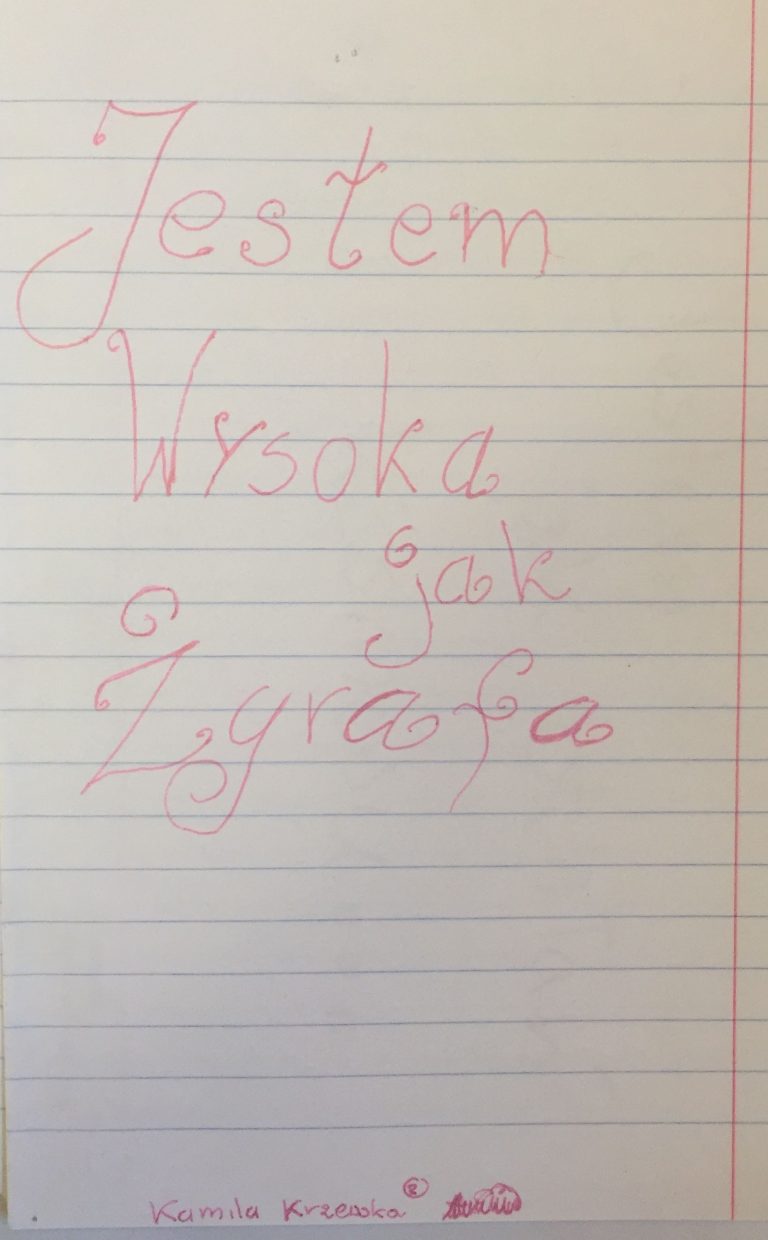 Jestem
Wysoka
jak
Żgrafa
Kamila Krzewska